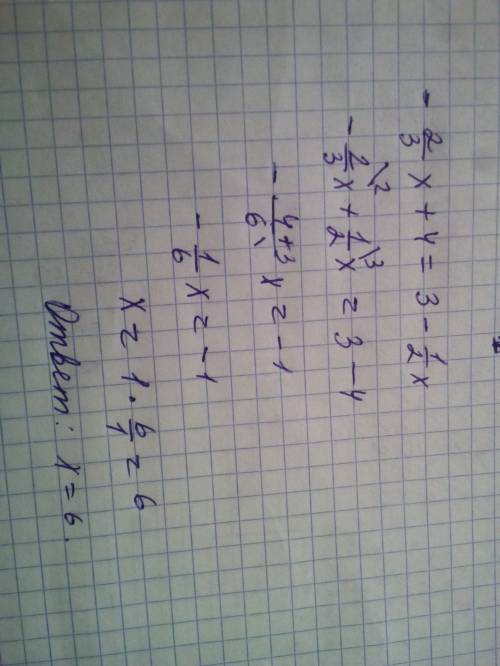 - 2/3 x + 4 = 3 - 1/2 x
- 2/3 \2 x + 1/2 \3 x = 3 - 4
- 4+3/6 x = -1
- 1/6 x = -1
x = 1 · 6/1 = 6
Ответ: x = 6.